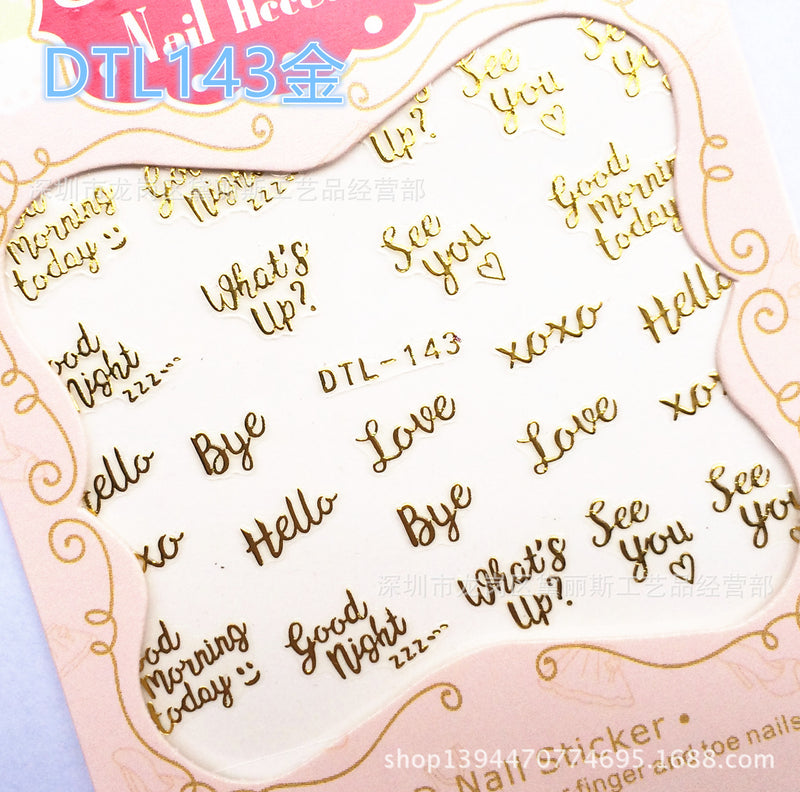 Nail
DTL143金
See
You
Up?
Good
Morning
today
Night
zzz...
深圳市龙岗区黛丽斯工艺品经营部
What's
Up?
See
You
Good
Morning
today
Night
zzz...
DTL-143
xoxo
Hello
Bye
Love
Love
Hello
Bye
See
You
See
You
What's
Up?
深圳市龙岗区黛丽斯工艺品经营部
Good
Night
zzz...
Morning
today
Nail Sticker
finger and toe nails
shop1394470774695.1688.com